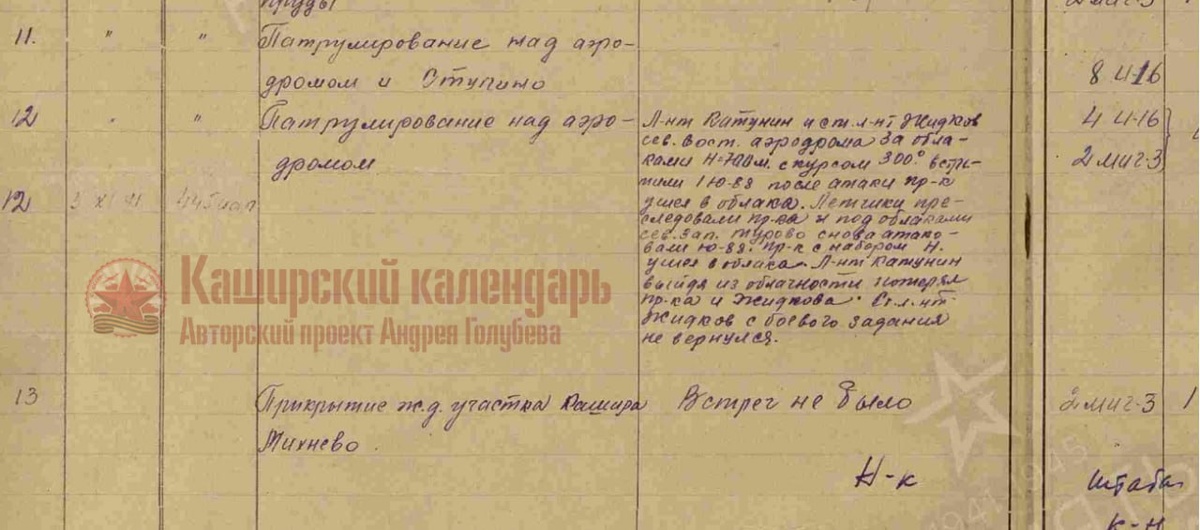 пруды
2 миг-3
11. " " Патрулирование над аэро-
дромом и Ступино
8 И-16
12 " " Патрулирование над аэро-
дромом
Л-нт Катунин и ст. л-нт Жидков
сев. вост. аэродрома за обла-
ками Н=700м. с курсом 300° встре-
тили 1 Ю-88 после атаки пр-к
ушел в облака. Летчики пре-
следовали пр-ка и под облаками
сев. зап. Турово снова атако-
вали Ю-88. пр-к с набором Н.
ушел в облака. Л-нт Катунин
выйдя из облачности потерял
пр-ка и Жидкова. Ст. л-нт
Жидков с боевого задания
не вернулся.
4 И-16
2 миг-3
12 5 XI 41 445 иап
Каширский календарь
Авторский проект Андрея Голубева
13 Прикрытие ж.д. участка Кашира
Михнево.
Встреч не было
2 миг-3 1
Н-к штаба
к-н
1941-1945